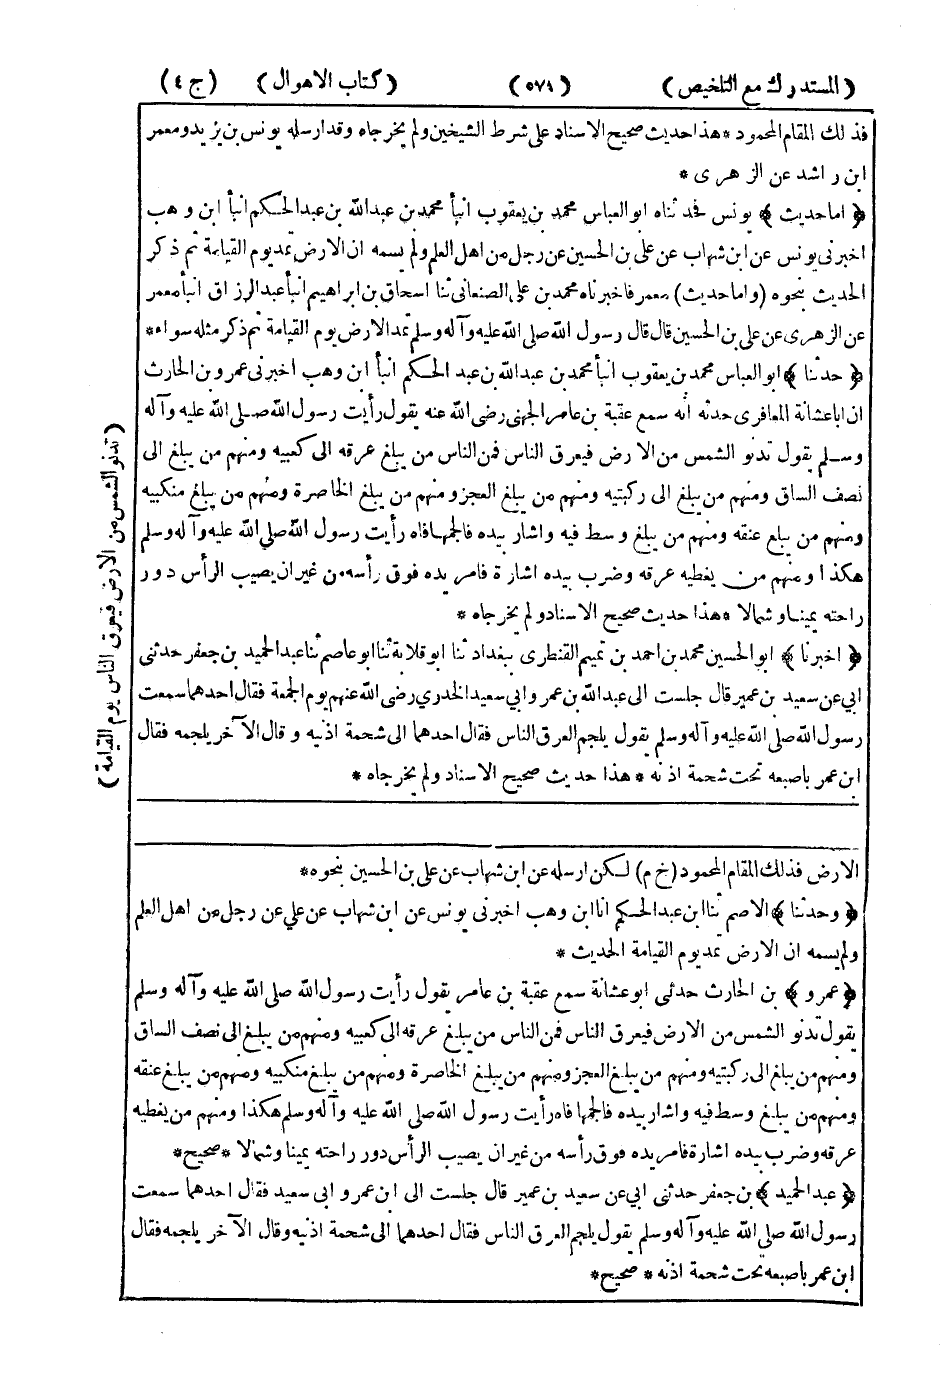 (المستدرك مع التلخيص) (٥٧١) (كتاب الاهوال) (ج ٤)
فذلك المقام المحمود * هذا حديث صحيح الاسناد على شرط الشيخين ولم يخرجاه وقد ارسله يونس بن يزيد ومعمر
ابن راشد عن الزهرى *
﴿ اما حديث ﴾ يونس فحدثناه ابوالعباس محمد بن يعقوب انبأ محمد بن عبدالله بن عبدالحكم انبأ ابن وهب
اخبرنى يونس عن ابن شهاب عن على بن الحسين عن رجل من اهل العلم ولم يسمه ان الارض تمد يوم القيامة ثم ذكر
الحديث بنحوه (واما حديث) معمر فاخبرناه محمد بن على الصنعانى ثنا اسحاق بن ابراهيم انبأ عبدالرزاق انبأ معمر
عن الزهرى عن على بن الحسين قال قال رسول الله صلى الله عليه وآله وسلم تمد الارض يوم القيامة ثم ذكر مثله سواء *
﴿ حدثنا ﴾ ابوالعباس محمد بن يعقوب انبأ محمد بن عبدالله بن عبد الحكم انبأ ابن وهب اخبرنى عمرو بن الحارث
ان اباعشانة المعافرى حدثه أنه سمع عقبة بن عامر الجهنى رضى الله عنه يقول رأيت رسول الله صلى الله عليه وآله
وسلم يقول تدنو الشمس من الارض فيعرق الناس فمن الناس من يبلغ عرقه الى كعبيه ومنهم من يبلغ الى
نصف الساق ومنهم من يبلغ الى ركبتيه ومنهم من يبلغ العجز ومنهم من يبلغ الخاصرة ومنهم من يبلغ منكبيه
ومنهم من يبلغ عنقه ومنهم من يبلغ وسط فيه واشار بيده فالجمها فاه رأيت رسول الله صلى الله عليه وآله وسلم
هكذا ومنهم من يغطيه عرقه وضرب بيده اشارة فامر يده فوق رأسه من غير ان يصيب الرأس دور
راحته يمينا وشمالا * هذا حديث صحيح الاسناد ولم يخرجاه *
﴿ اخبرنا ﴾ ابو الحسين محمد بن احمد بن تميم القنطرى ببغداد ثنا ابو قلابة ثنا ابو عاصم ثنا عبدالحميد بن جعفر حدثنى
ابى عن سعيد بن عمير قال جلست الى عبدالله بن عمر وابي سعيد الخدري رضى الله عنهم يوم الجمعة فقال احدهما سمعت
رسول الله صلى الله عليه وآله وسلم يقول يلجم العرق الناس فقال احدهما الى شحمة اذنيه وقال الآخر يلجمه فقال
ابن عمر باصبعه تحت شحمة اذنه * هذا حديث صحيح الاسناد ولم يخرجاه *
(تدنو الشمس من الارض فيعرق الناس يوم القيامة)
الارض فذلك المقام المحمود (خ م) لكن ارسله عن ابن شهاب عن على بن الحسين بنحوه *
﴿ وحدثنا ﴾ الاصم ثنا ابن عبدالحكم انا ابن وهب اخبرنى يونس عن ابن شهاب عن علي عن رجل من اهل العلم
ولم يسمه ان الارض تمد يوم القيامة الحديث *
﴿ عمرو ﴾ بن الحارث حدثنى ابو عشانة سمع عقبة بن عامر يقول رأيت رسول الله صلى الله عليه وآله وسلم
يقول تدنو الشمس من الارض فيعرق الناس فمن الناس من يبلغ عرقه الى كعبيه ومنهم من يبلغ الى نصف الساق
ومنهم من يبلغ الى ركبتيه ومنهم من يبلغ العجز ومنهم من يبلغ الخاصرة ومنهم من يبلغ منكبيه ومنهم من يبلغ عنقه
ومنهم من يبلغ وسط فيه واشار بيده فالجمها فاه رأيت رسول الله صلى الله عليه وآله وسلم هكذا ومنهم من يغطيه
عرقه وضرب بيده اشارة فامر يده فوق رأسه من غير ان يصيب الرأس دور راحته يمينا وشمالا * صحيح *
﴿ عبدالحميد ﴾ بن جعفر حدثنى ابي عن سعيد بن عمير قال جلست الى ابن عمر و ابى سعيد فقال احدهما سمعت
رسول الله صلى الله عليه وآله وسلم يقول يلجم العرق الناس فقال احدهما الى شحمة اذنيه وقال الآخر يلجمه فقال
ابن عمر باصبعه تحت شحمة اذنه * صحيح *